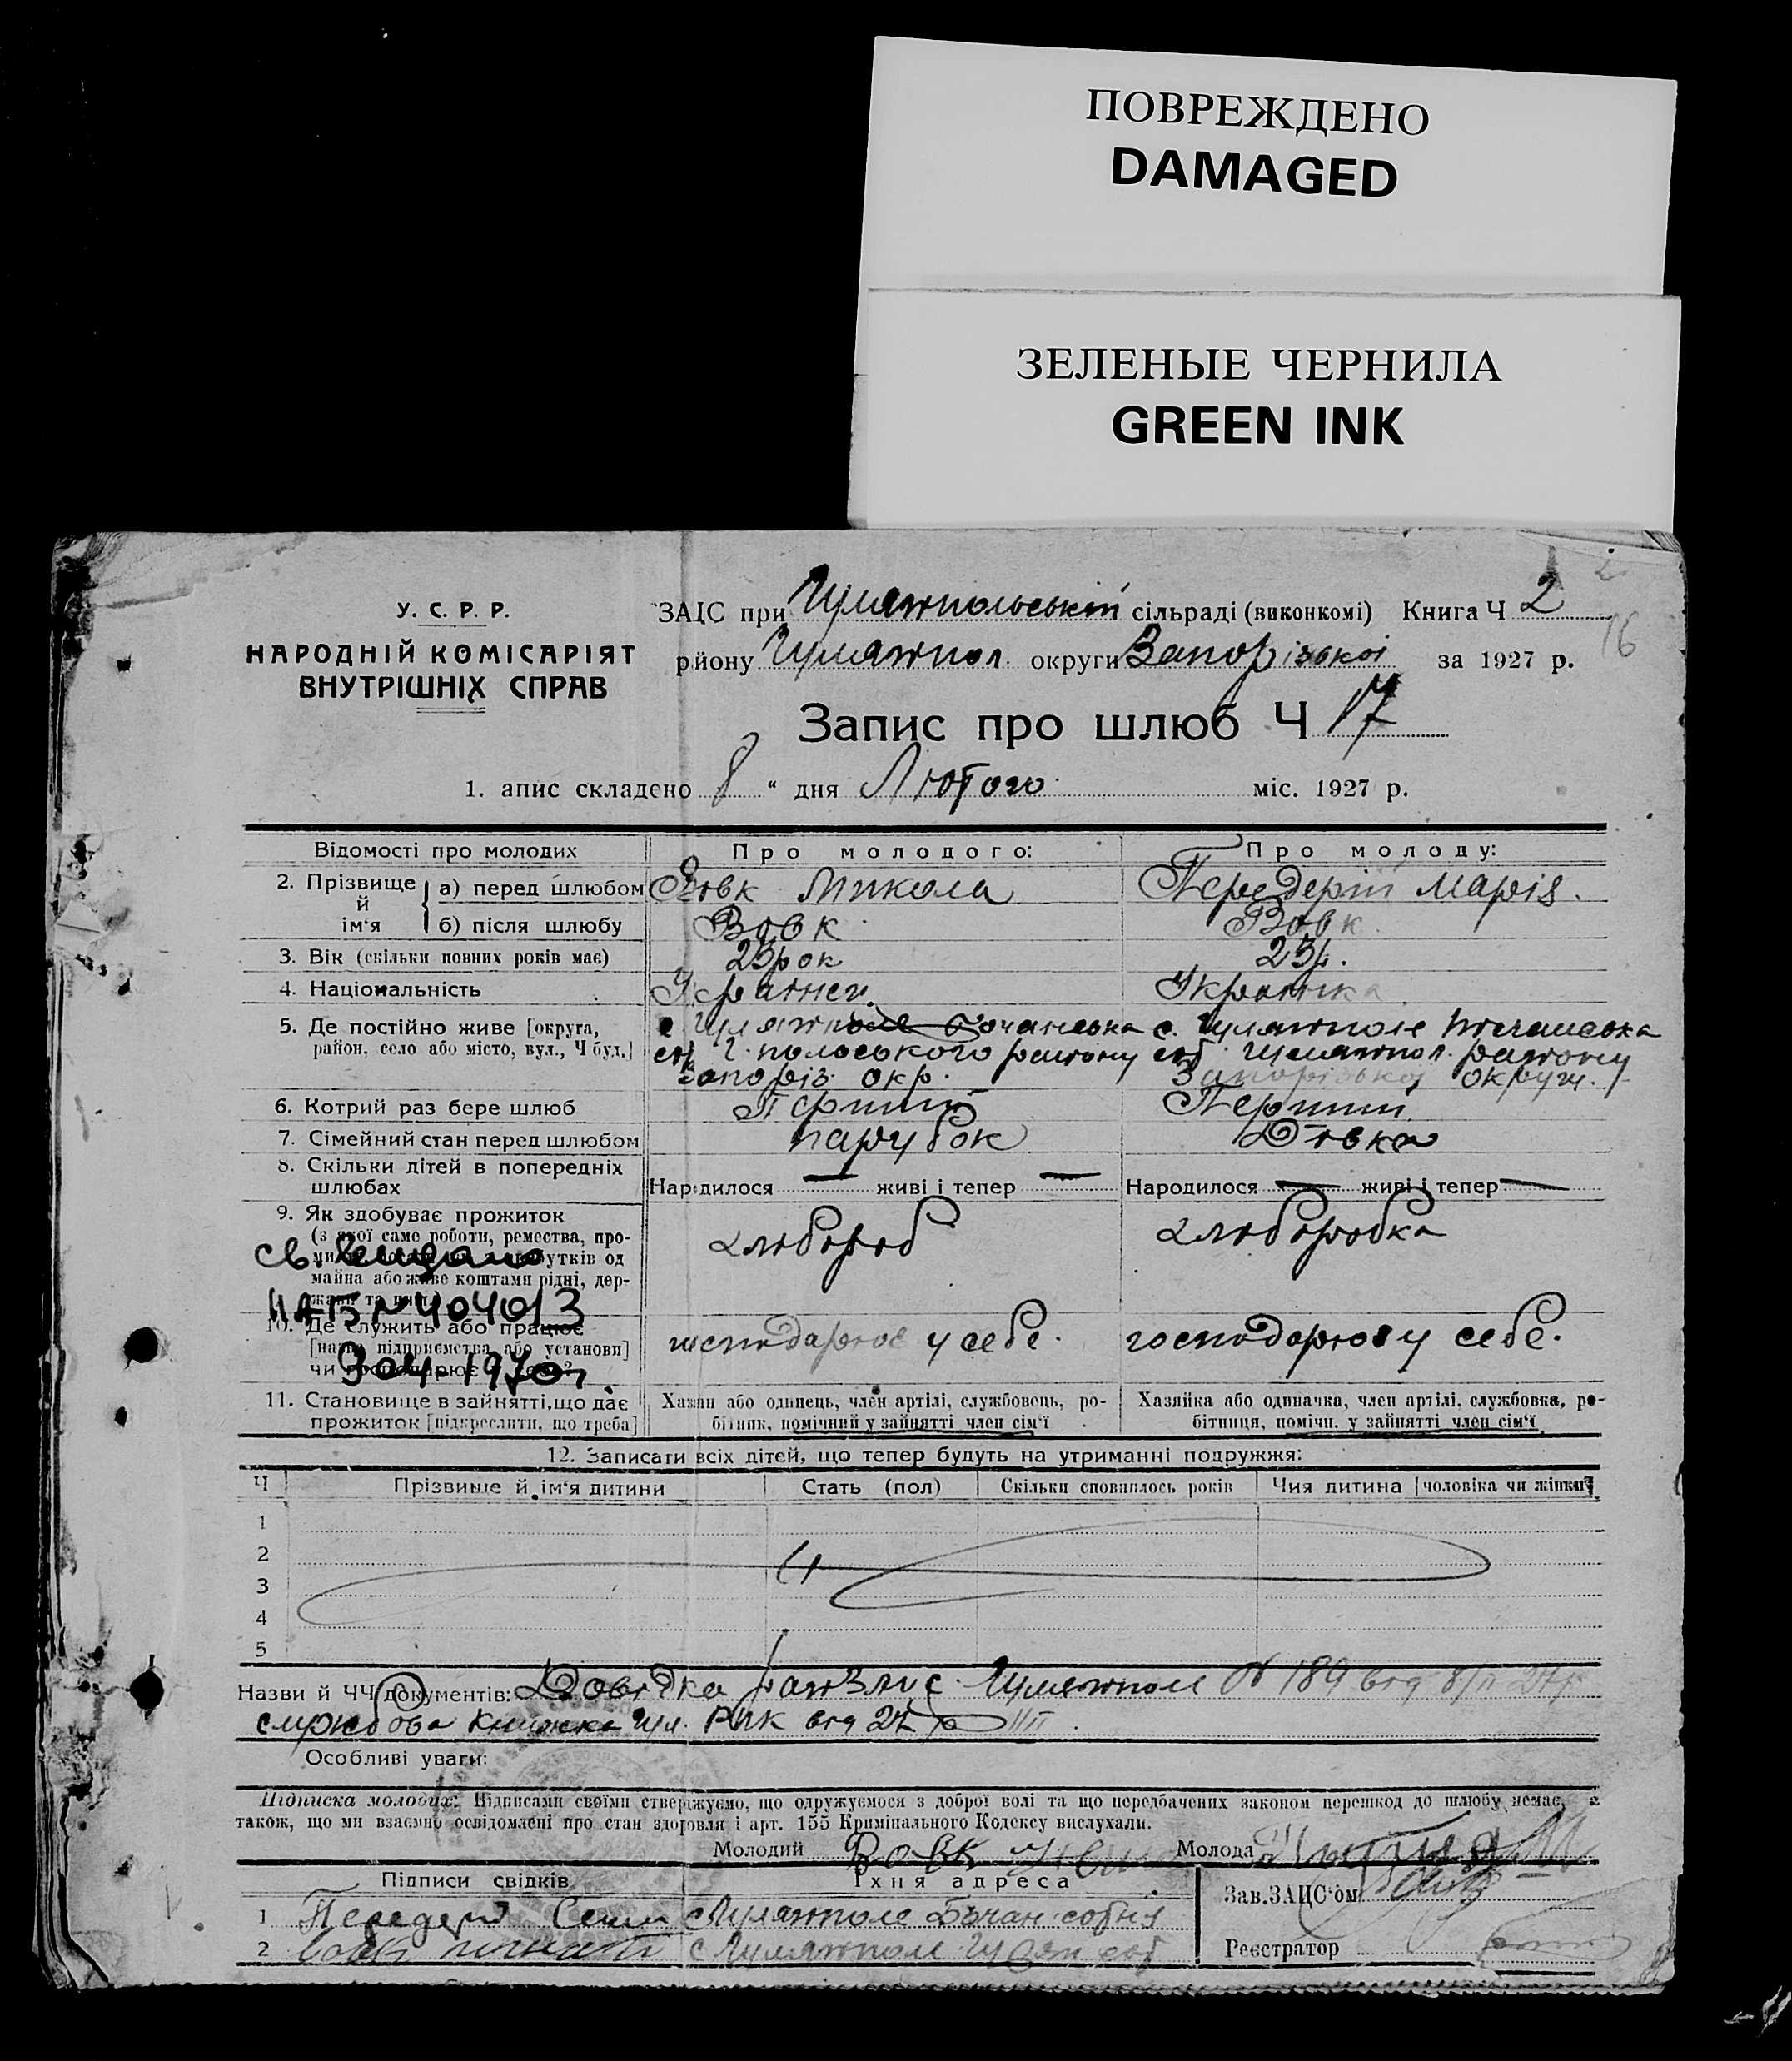 ПОВРЕЖДЕНО
DAMAGED
ЗЕЛЕНЫЕ ЧЕРНИЛА
GREEN INK
2
16
У. С. Р. Р.
НАРОДНІЙ КОМІСАРІЯТ
ВНУТРІШНІХ СПРАВ
ЗАІС при Гуляйпольській сільраді (виконкомі) Книга Ч 2
рйону Гуляйпол округи Запорізької за 1927 р.
Запис про шлюб Ч 17
1. апис складено 8 “ дня Лютого міс. 1927 р.
Відомості про молодих Про молодого: Про молоду:
2. Прізвище й ім'я а) перед шлюбом Вовк Микола Передерій Марія.
б) після шлюбу Вовк Вовк.
3. Вік (скільки повних років має) 23 рок 23 р.
4. Національність Українец Українка
5. Де постійно живе [округа, район, село або місто, вул., Ч буд.] с. Гуляйполе Бочанська сот Г. польського району Запоріз. окр. с. Гуляйполе сот. Гуляйпол. району Запорізької округи.
6. Котрий раз бере шлюб Перший Перший
7. Сімейний стан перед шлюбом парубок Дівка
8. Скільки дітей в попередніх шлюбах Народилося — живі і тепер — Народилося — живі і тепер —
9. Як здобуває прожиток
(з якої саме роботи, ремества, про- утків од
майна або живе коштами рідні, дер-
хлібороб хліборобка
№ 404013
10. Де служить або працює
[назва підприємства або установи]
чи господарює у себе?
господарює у себе. господарює у себе.
1970 г.
11. Становище в зайнятті, що дає прожиток [підкреслити, що треба]
Хазяїн або одинець, член артілі, службовець, ро-
бітник, помічний у зайнятті член сім'ї
Хазяйка або одиначка, член артілі, службовка, ро-
бітниця, помічн. у зайнятті член сім'ї
12. Записати всіх дітей, що тепер будуть на утриманні подружжя:
Ч Прізвище й ім'я дитини Стать (пол) Скільки сповнилось років Чия дитина [чоловіка чи жінки]
1
2
3
4
5
Назви й ЧЧ документів: Довідка Гуляйполе № 189 від 8/II 27 р
службова книжка Гул. РИК від 27
Особливі уваги:
Підписка молодих: Підписами своїми стверджуємо, що одружуємося з доброї волі та що передбачених законом перешкод до шлюбу немає, а
також, що ми взаємно освідомлені про стан здоровля і арт. 155 Кримінального Кодексу вислухали.
Молодий Вовк Молода
Підписи свідків Їхня адреса Зав. ЗАЦС'ом
1 Передерій Семен с Гуляйполе Бочан сотня
2 Вовк с Гуляйполе сот
Реєстратор